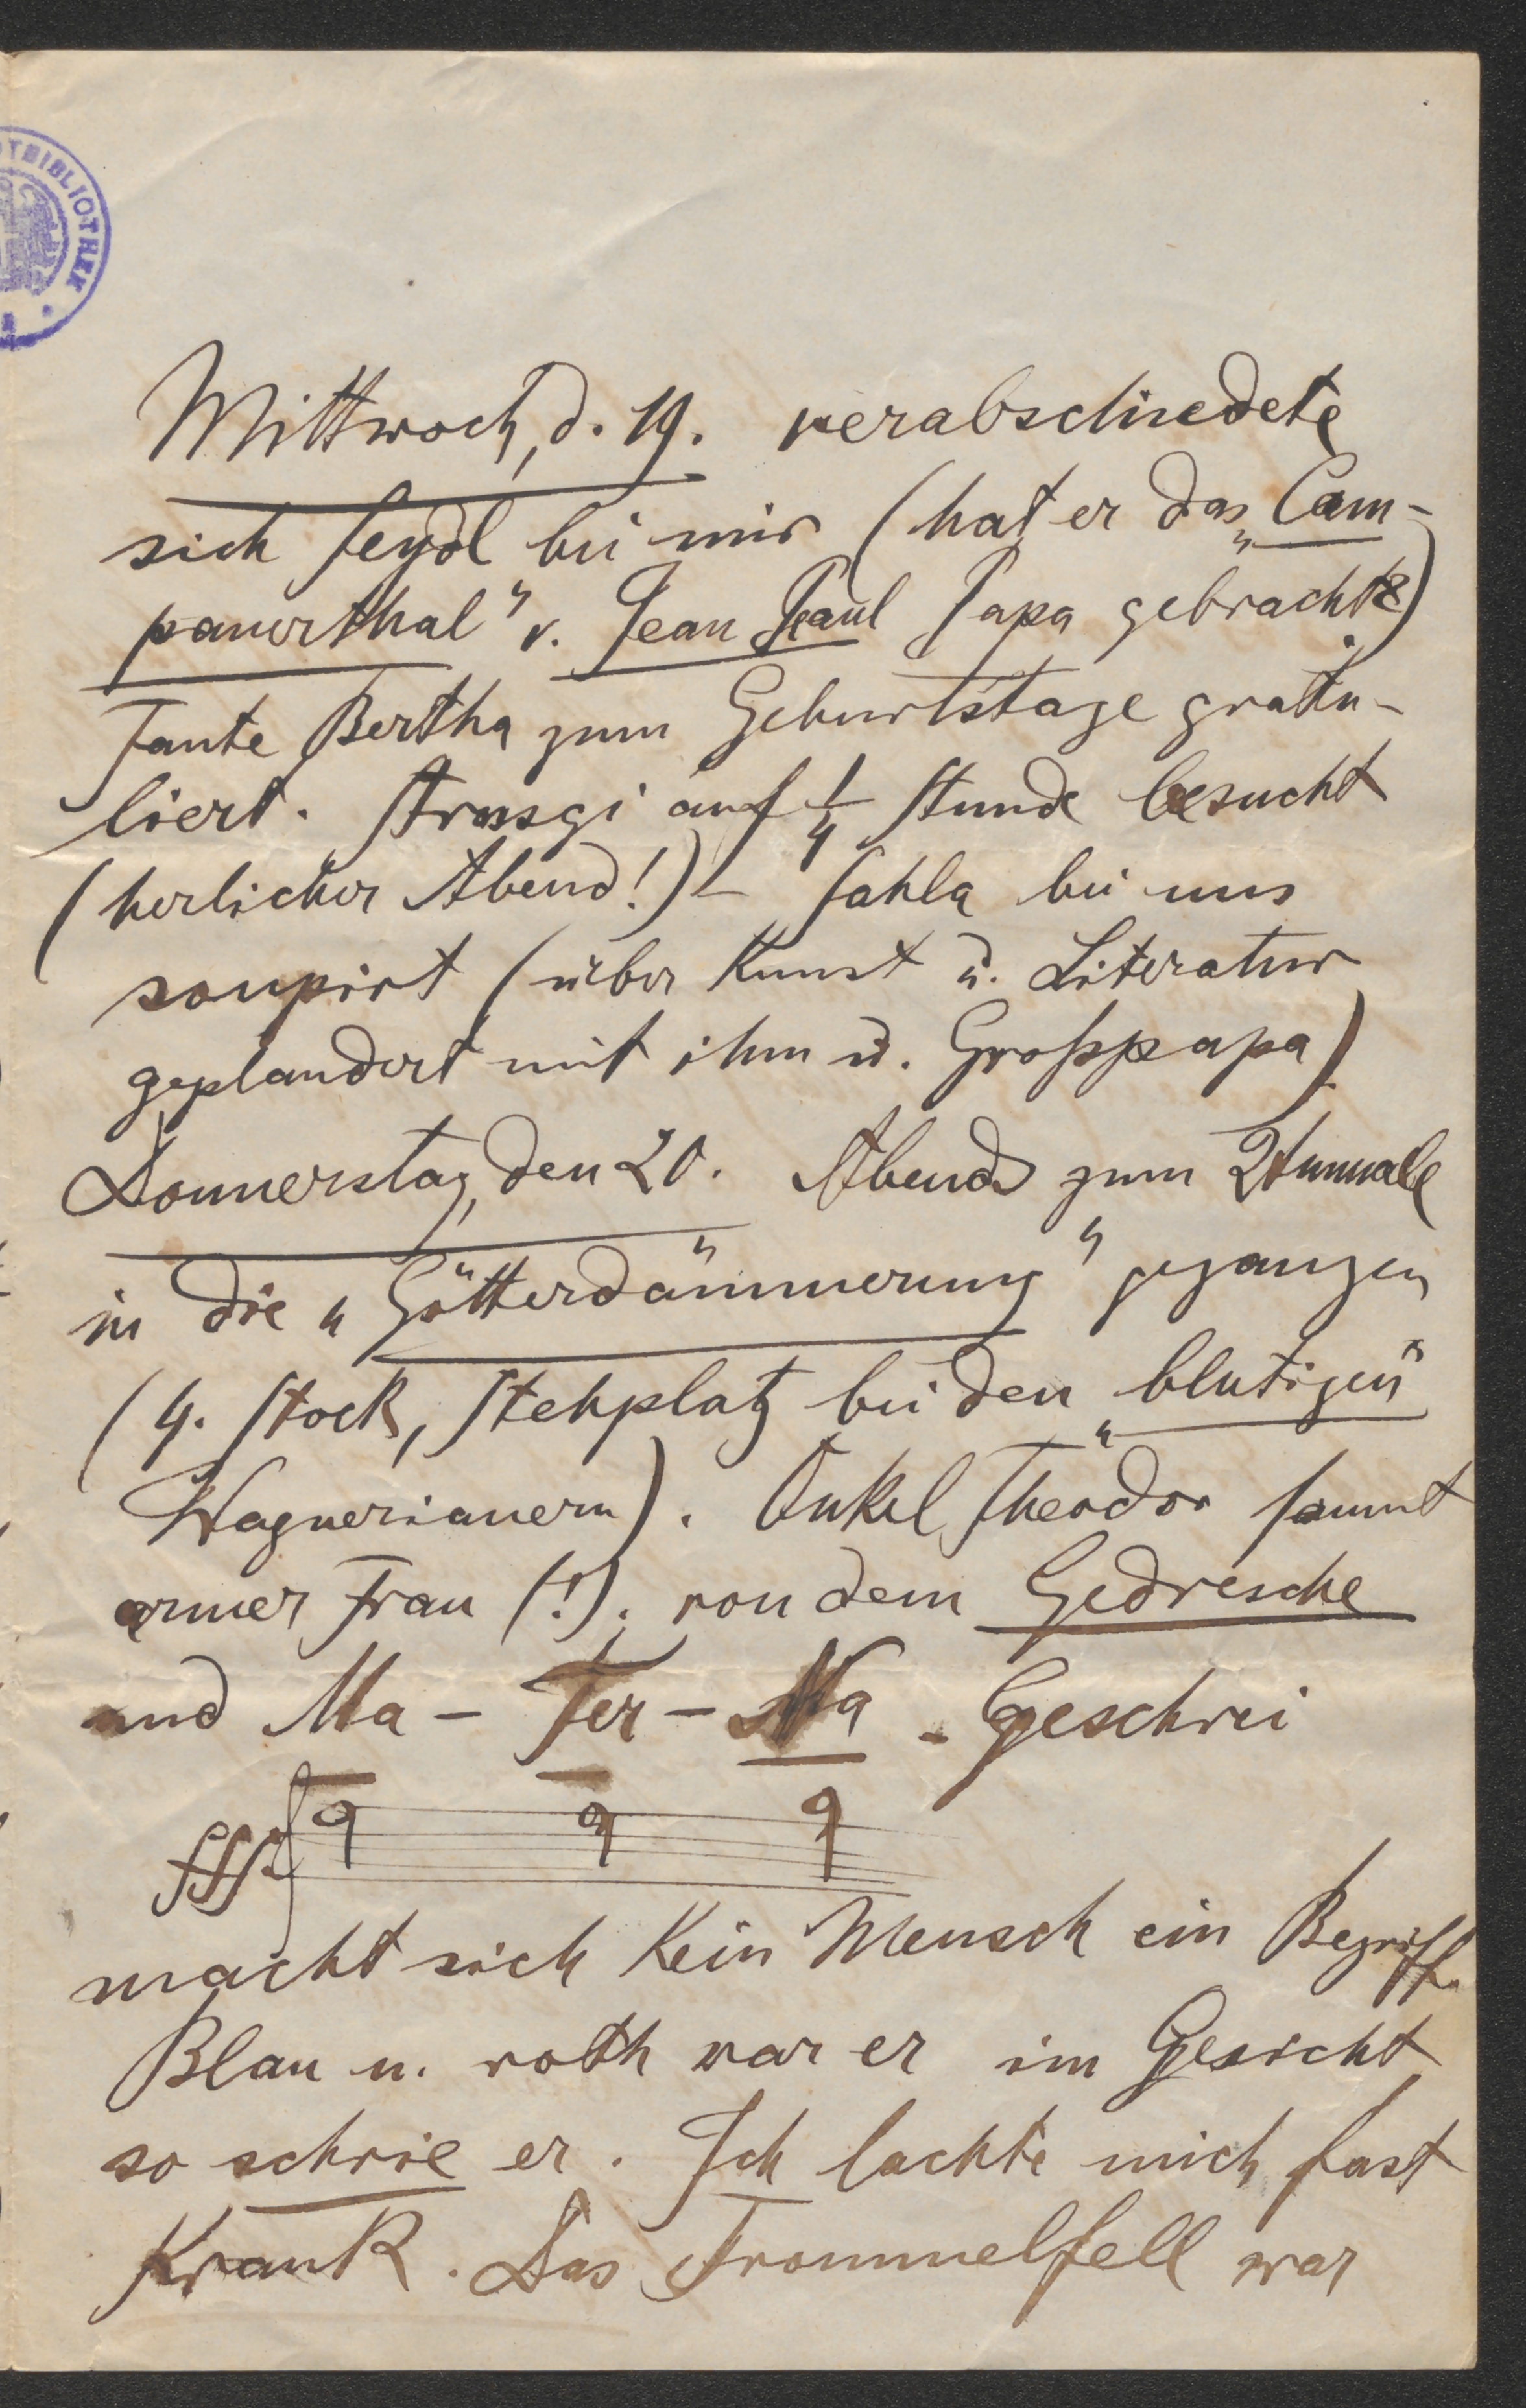 TBIBLIOTHEK
Mittwoch, d. 19. verabschiedete
sich Seydl bei mir (hat er das „Cam-
panerthal" v. Jean Paul Papa gebracht)
Tante Bertha zum Geburtstage gratu-
liert. auf 1/4 Stunde besucht
(herlicher Abend!) – Sahla bei uns
soupirt (über Kunst u. Literatur
geplaudert mit ihm u. Großpapa)
Donnerstag, den 20. Abends zum 2tenmale
in die „Götterdämmerung" gegangen
(4. Stock, Stehplatz bei den „blutigen"
Wagnerianern). Onkel Theodor sammt
armer Frau (!). von dem Gedresche
und Ma – Ter – Na - Geschrei
fff
macht sich kein Mensch ein Begriff.
Blau u. roth war er im Gesicht
so schrie er. Ich lachte mich fast
krank. Das Trommelfell war